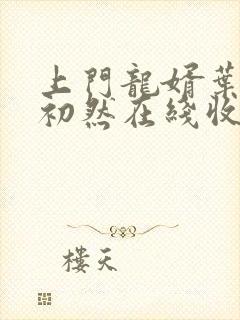 上門龍婿葉
初然在綫收
樓天